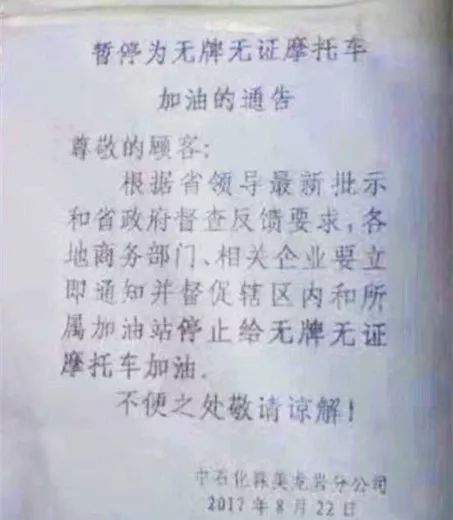 暂停为无牌无证摩托车
加油的通告
尊敬的顾客:
根据省领导最新批示
和省政府督查反馈要求,各
地商务部门、相关企业要立
即通知并督促辖区内和所
属加油站停止给无牌无证
摩托车加油.
不便之处敬请谅解!
中石化森美龙岩分公司
2017年8月22日